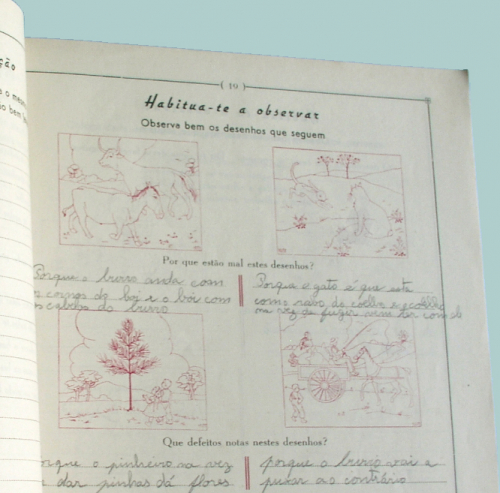 ção
o mesmo
io bem
( 19 )
Habitua-te a observar
Observa bem os desenhos que seguem
Por que estão mal estes desenhos?
Porque o burro anda com
cornos do boi e o bói com
cabelos do burro
Porque o gato é que está
com o rabo do coelho e o coelho
na vez de fugir vem ter com ele
Que defeitos notas nestes desenhos?
porque o pinheiro na vez
dar pinhas dá flores
porque o burro vai a
puxar ao contrário